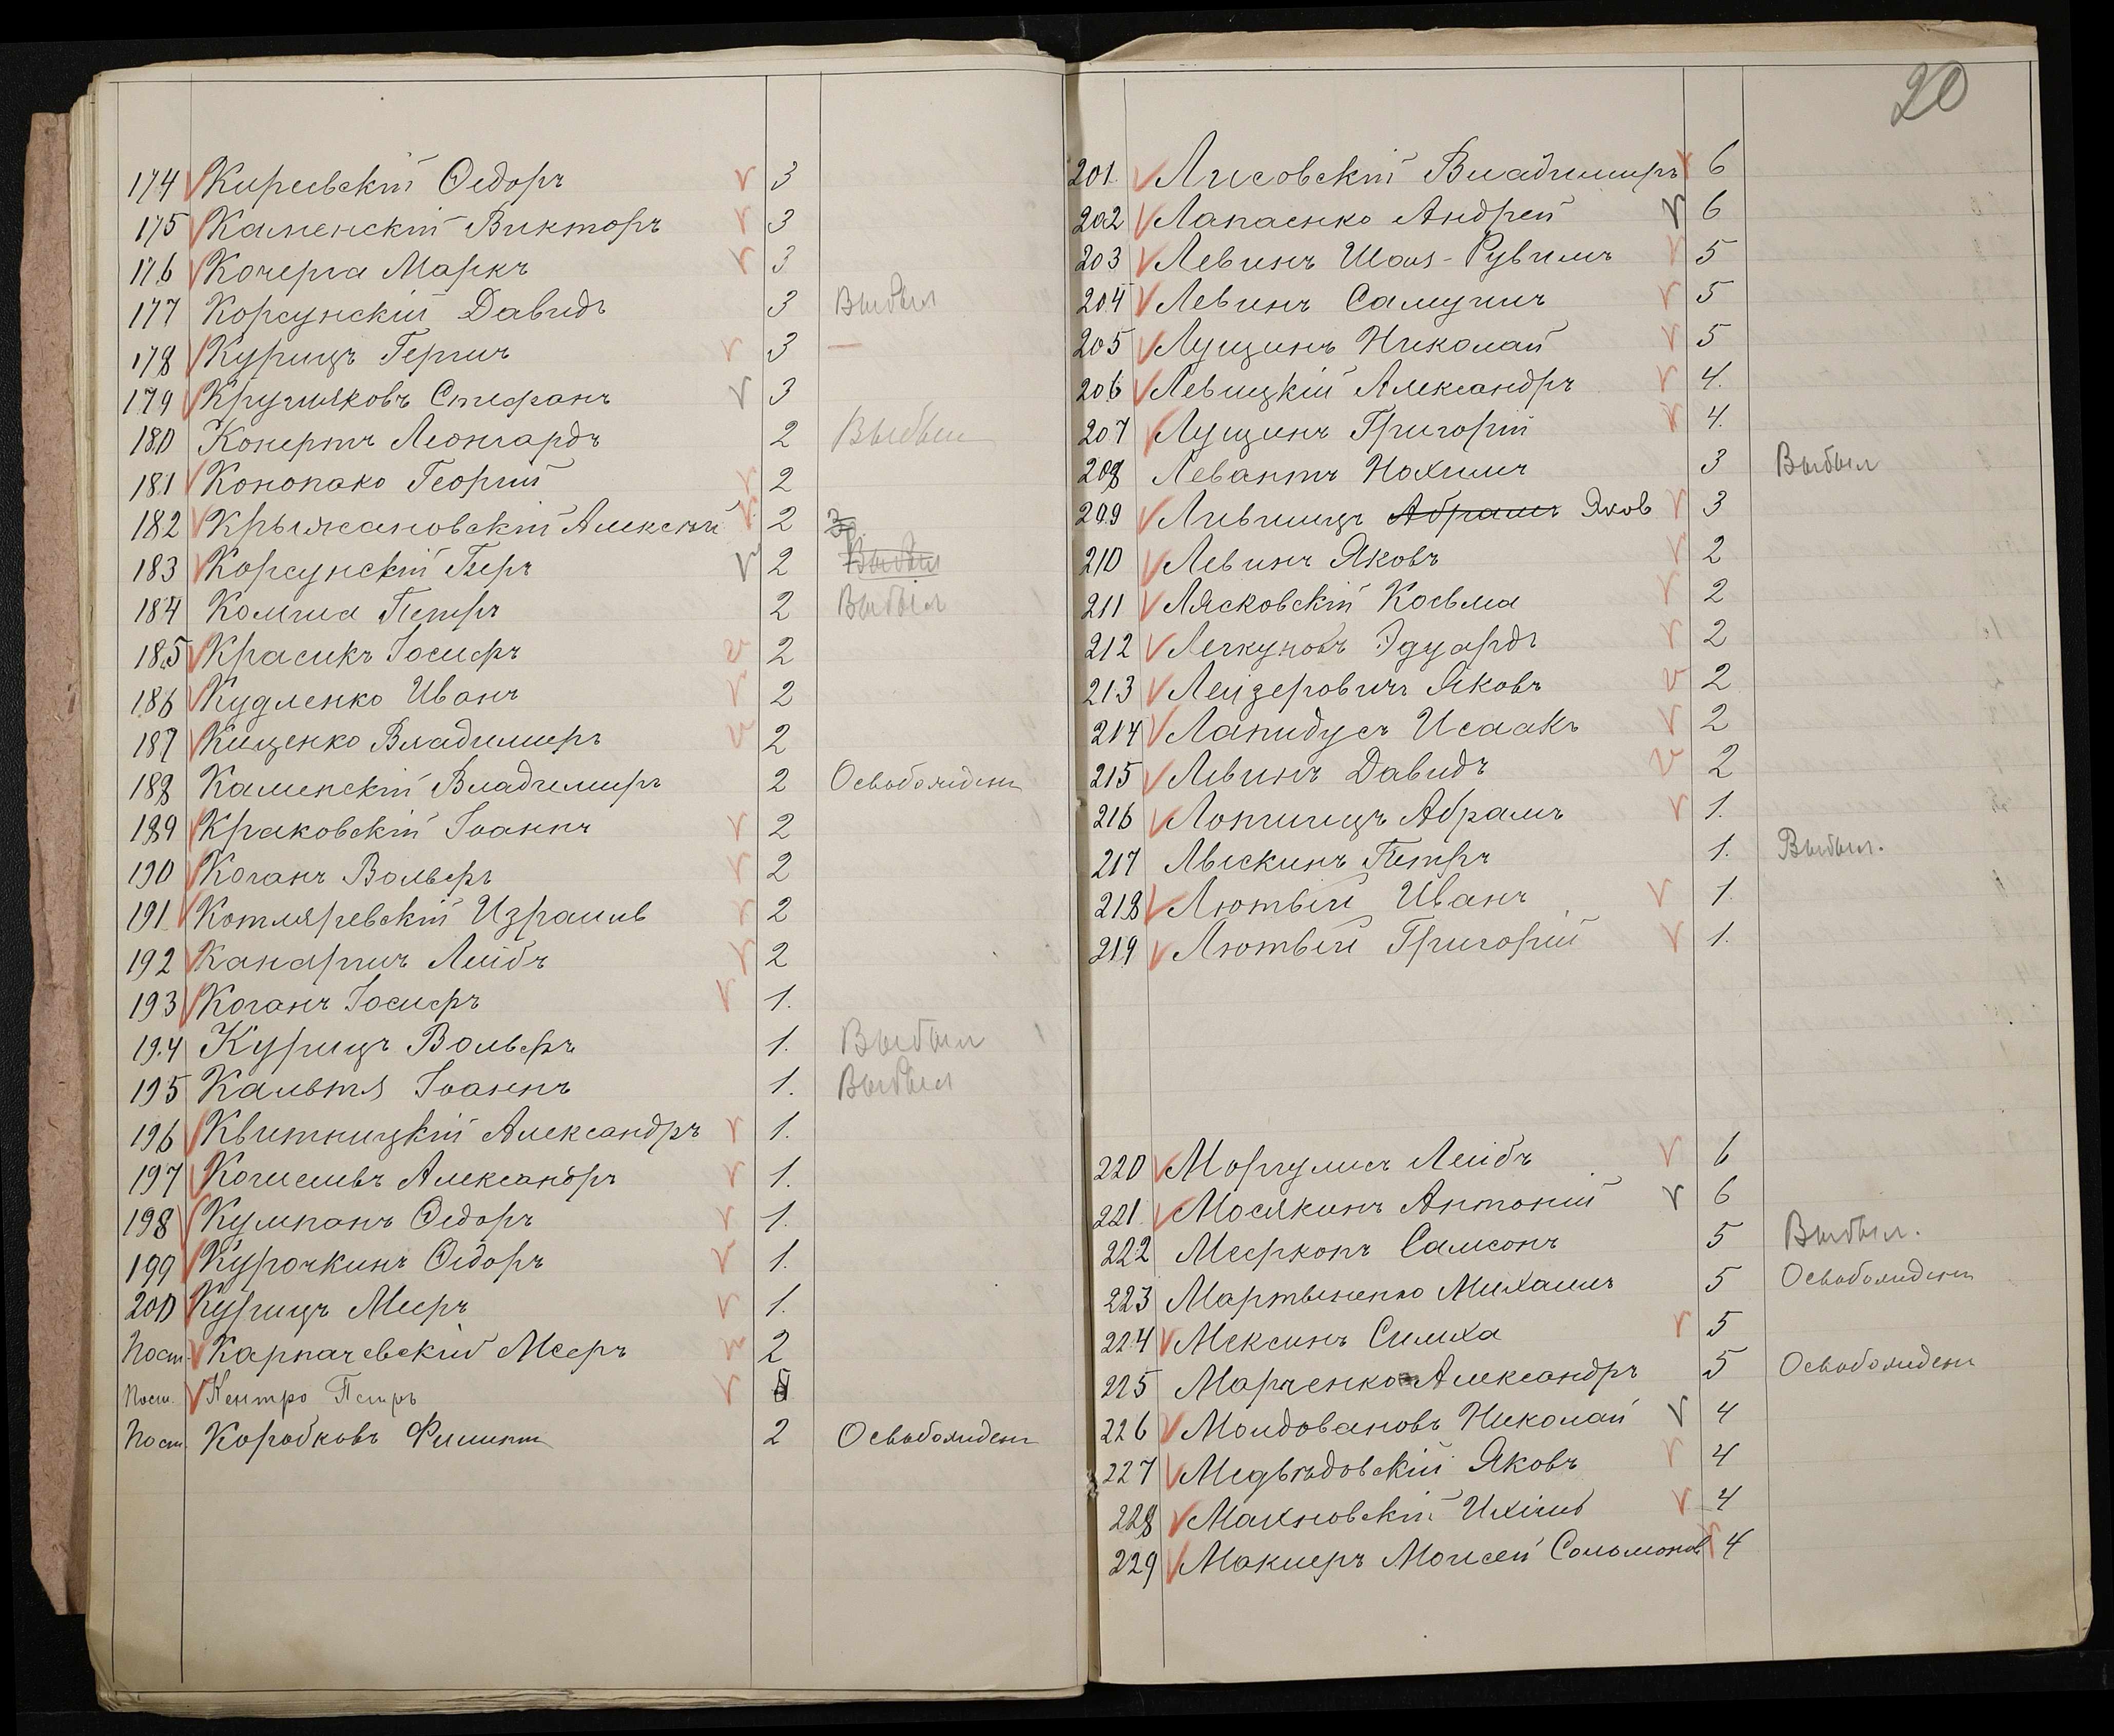 174 Киревскій Ѳедоръ 3
175 Каменскій Викторъ 3
176 Кочерга Маркъ 3
177 Корсунскій Давидъ 3 Выбыл
178 Курицъ Гершъ 3 —
179 Кругляковъ Стефанъ 3
180 Конертъ Леонгардъ 2 Выбыл
181 Конопако Георгій 2
182 Крыжановскій Алексѣй 2
183 Корсунскій Беръ 2 Выбыл
184 Комша Петръ 2 Выбыл
185 Красикъ Іосифъ 2
186 Кудленко Иванъ 2
187 Кищенко Владимиръ 2
188 Каменскій Владимиръ 2 Освобожден
189 Краковскій Іоаннъ 2
190 Коганъ Вольфъ 2
191 Котляревскій Израиль 2
192 Канаричъ Лейбъ 2
193 Коганъ Іосифъ 1.
194 Курицъ Вольфъ 1. Выбыл
195 Кальтя Іоаннъ 1. Выбыл
196 Квитницкій Александръ 1.
197 Александръ 1.
198 Кулпанъ Ѳедоръ 1.
199 Курочкинъ Ѳедоръ 1.
200 Курицъ Мееръ 1.
Пост. Карпачевскій Мееръ 2
Пост. Кентро Петръ
Пост. Коробковъ Филиппъ 2 Освобожден
20
201 Лисовскій Владимиръ 6
202 Лапаенко Андрей 6
203 Левинъ Шая-Рувимъ 5
204 Левинъ Самуилъ 5
205 Лущинъ Николай 5
206 Левицкій Александръ 4.
207 Лущинъ Григорій 4.
208 Левантъ Нохимъ 3 Выбыл
209 Лившицъ Абрамъ Яков 3
210 Левинъ Яковъ 2
211 Лясковскій Косьма 2
212 Легкуновъ Эдуардъ 2
213 Лейзеровичъ Яковъ 2
214 Лапидусъ Исаакъ 2
215 Левинъ Давидъ 2
216 Лопшицъ Абрамъ 1.
217 Лыскинъ Петръ 1. Выбыл.
218 Лютый Иванъ 1.
219 Лютый Григорій 1.
220 Моргулисъ Лейбъ 6
221 Мосякинъ Антоній 6
222 Меерконъ Самсонъ 5 Выбыл.
223 Мартыненко Михаилъ 5 Освобожден
224 Мексинъ Симха 5
225 Марченко Александръ 5 Освобожден
226 Молдовановъ Николай 4
227 Медвѣдовскій Яковъ 4
228 Махновскій Ихіил 4
229 Макшеръ Моисей Соломонов 4